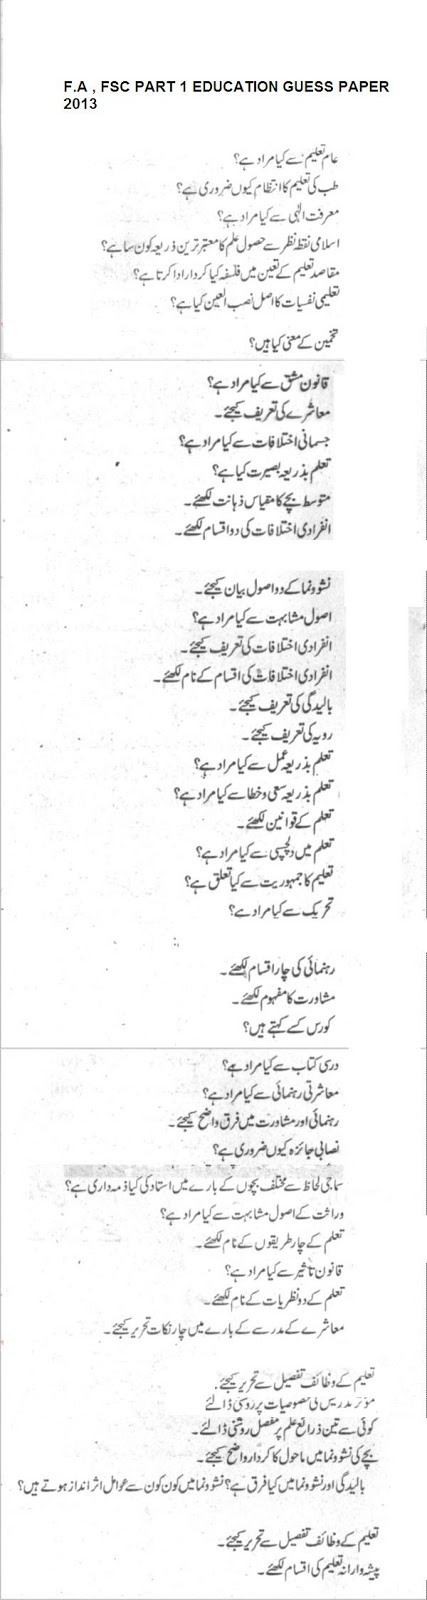 F.A , FSC PART 1 EDUCATION GUESS PAPER
2013
عام تعلیم سے کیا مراد ہے؟
طب کی تعلیم کا انتظام کیوں ضروری ہے؟
معرفت الٰہی سے کیا مراد ہے؟
اسلامی نقطہ نظر سے حصول علم کا معتبر ترین ذریعہ کون سا ہے؟
مقاصد تعلیم کے تعین میں فلسفہ کیا کردار ادا کرتا ہے؟
تعلیمی نفسیات کا اصل نصب العین کیا ہے؟
تخمین کے معنی کیا ہیں؟
قانون مشق سے کیا مراد ہے؟
معاشرے کی تعریف کیجئے۔
جسمانی اختلافات سے کیا مراد ہے؟
تعلم بذریعہ بصیرت کیا ہے؟
متوسط بچے کا مقیاس ذہانت لکھئے۔
انفرادی اختلافات کی دو اقسام لکھئے۔
نشوونما کے دو اصول بیان کیجئے۔
اصول مشابہت سے کیا مراد ہے؟
انفرادی اختلافات کی تعریف کیجئے۔
انفرادی اختلافات کی اقسام کے نام لکھئے۔
بالیدگی کی تعریف کیجئے۔
رویہ کی تعریف کیجئے۔
تعلم بذریعہ عمل سے کیا مراد ہے؟
تعلم بذریعہ سعی و خطا سے کیا مراد ہے؟
تعلم کے قوانین لکھئے۔
تعلم میں دلچسپی سے کیا مراد ہے؟
تعلیم کا جمہوریت سے کیا تعلق ہے؟
تحریک سے کیا مراد ہے؟
رہنمائی کی چار اقسام لکھئے۔
مشاورت کا مفہوم لکھئے۔
کورس کسے کہتے ہیں؟
درسی کتاب سے کیا مراد ہے؟
معاشرتی رہنمائی سے کیا مراد ہے؟
رہنمائی اور مشاورت میں فرق واضح کیجئے۔
نصابی جائزہ کیوں ضروری ہے؟
سماجی لحاظ سے مختلف بچوں کے بارے میں استاد کی کیا ذمہ داری ہے؟
وراثت کے اصول مشابہت سے کیا مراد ہے؟
تعلم کے چار طریقوں کے نام لکھئے۔
قانون تاثیر سے کیا مراد ہے؟
تعلم کے دو نظریات کے نام لکھئے۔
معاشرے کے مدرسے کے بارے میں چار نکات تحریر کیجئے۔
تعلیم کے وظائف تفصیل سے تحریر کیجئے۔
موثر تدریس کی خصوصیات پر روشنی ڈالئے
کوئی سے تین ذرائع علم پر مفصل روشنی ڈالئے۔
بچے کی نشوونما میں ماحول کا کردار واضح کیجئے۔
بالیدگی اور نشوونما میں کیا فرق ہے؟ نشوونما میں کون کون سے عوامل اثر انداز ہوتے ہیں؟
تعلیم کے وظائف تفصیل سے تحریر کیجئے۔
پیشہ وارانہ تعلیم کی اقسام لکھئے۔